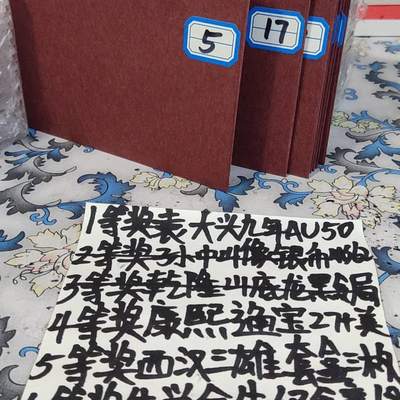 5
17
1等奖袁大头九年AU50
2等奖孙中山像银币
3等奖乾隆山底龙黑局
4等奖康熙通宝27十美
5等奖西汉三雄套盒三枚